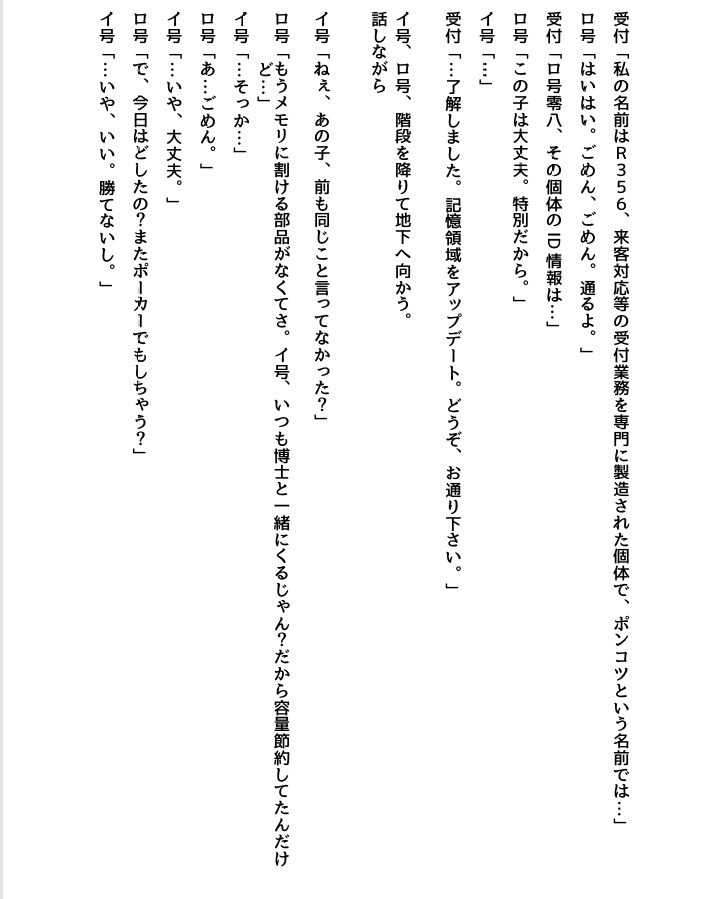 受付「私の名前はR356、来客対応等の受付業務を専門に製造された個体で、ポンコツという名前では…」
ロ号「はいはい。ごめん、ごめん。通るよ。」
受付「ロ号零八、その個体のID情報は…」
ロ号「この子は大丈夫。特別だから。」
イ号「…」
受付「…了解しました。記憶領域をアップデート。どうぞ、お通り下さい。」
イ号、ロ号、階段を降りて地下へ向かう。
話しながら
イ号「ねぇ、あの子、前も同じこと言ってなかった？」
ロ号「もうメモリに割ける部品がなくてさ。イ号、いつも博士と一緒にくるじゃん？だから容量節約してたんだけ
ど…」
イ号「…そっか…」
ロ号「あ…ごめん。」
イ号「…いや、大丈夫。」
ロ号「で、今日はどしたの？またポーカーでもしちゃう？」
イ号「…いや、いい。勝てないし。」